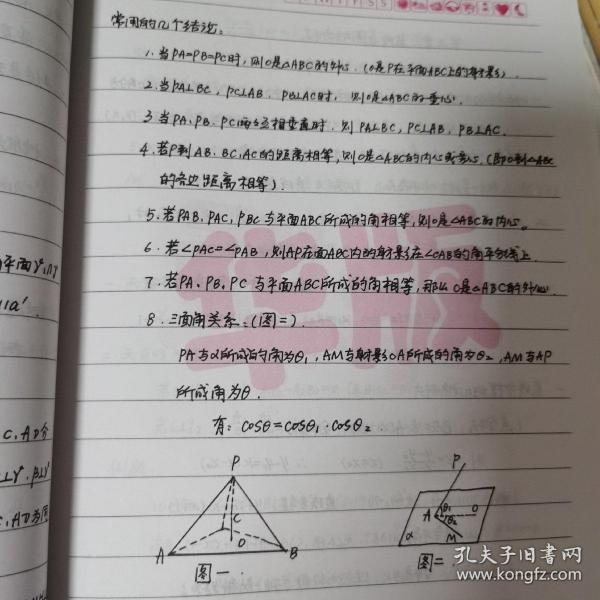 常用的几个结论。
1.当PA=PB=PC时,则O是△ABC的外心.(O是P在平面ABC上的射影).
2.当PA⊥BC,PC⊥AB,PB⊥AC时,则O是△ABC的垂心.
3当PA、PB、PC两两互相垂直时.则PA⊥BC,PC⊥AB,PB⊥AC.
4.若P到AB、BC、AC的距离相等,则O是△ABC的内心或旁心.(即O到△ABC
的各边距离相等)
5.若PAB,PAC,PBC与平面ABC所成的角相等,则O是△ABC的内心。
6.若∠PAC=∠PAB,则AP在面ABC内的射影在∠CAB的角平分线上
7.若PA、PB、PC与平面ABC所成的角相等,那么O是△ABC的外心.
8.三面角关系:(图二).
PA与α所成的角为θ1,AM与射影OA所成的角为θ2,AM与AP
所成角为θ.
有:cosθ=cosθ1·cosθ2
平面γ,
∥a'.
C、AD
⊥γ,β⊥γ
P
C
O
A
B
图一.
P
A
θ1
θ2
O
M
α
图二
华版
孔夫子旧书网
www.kongfz.com